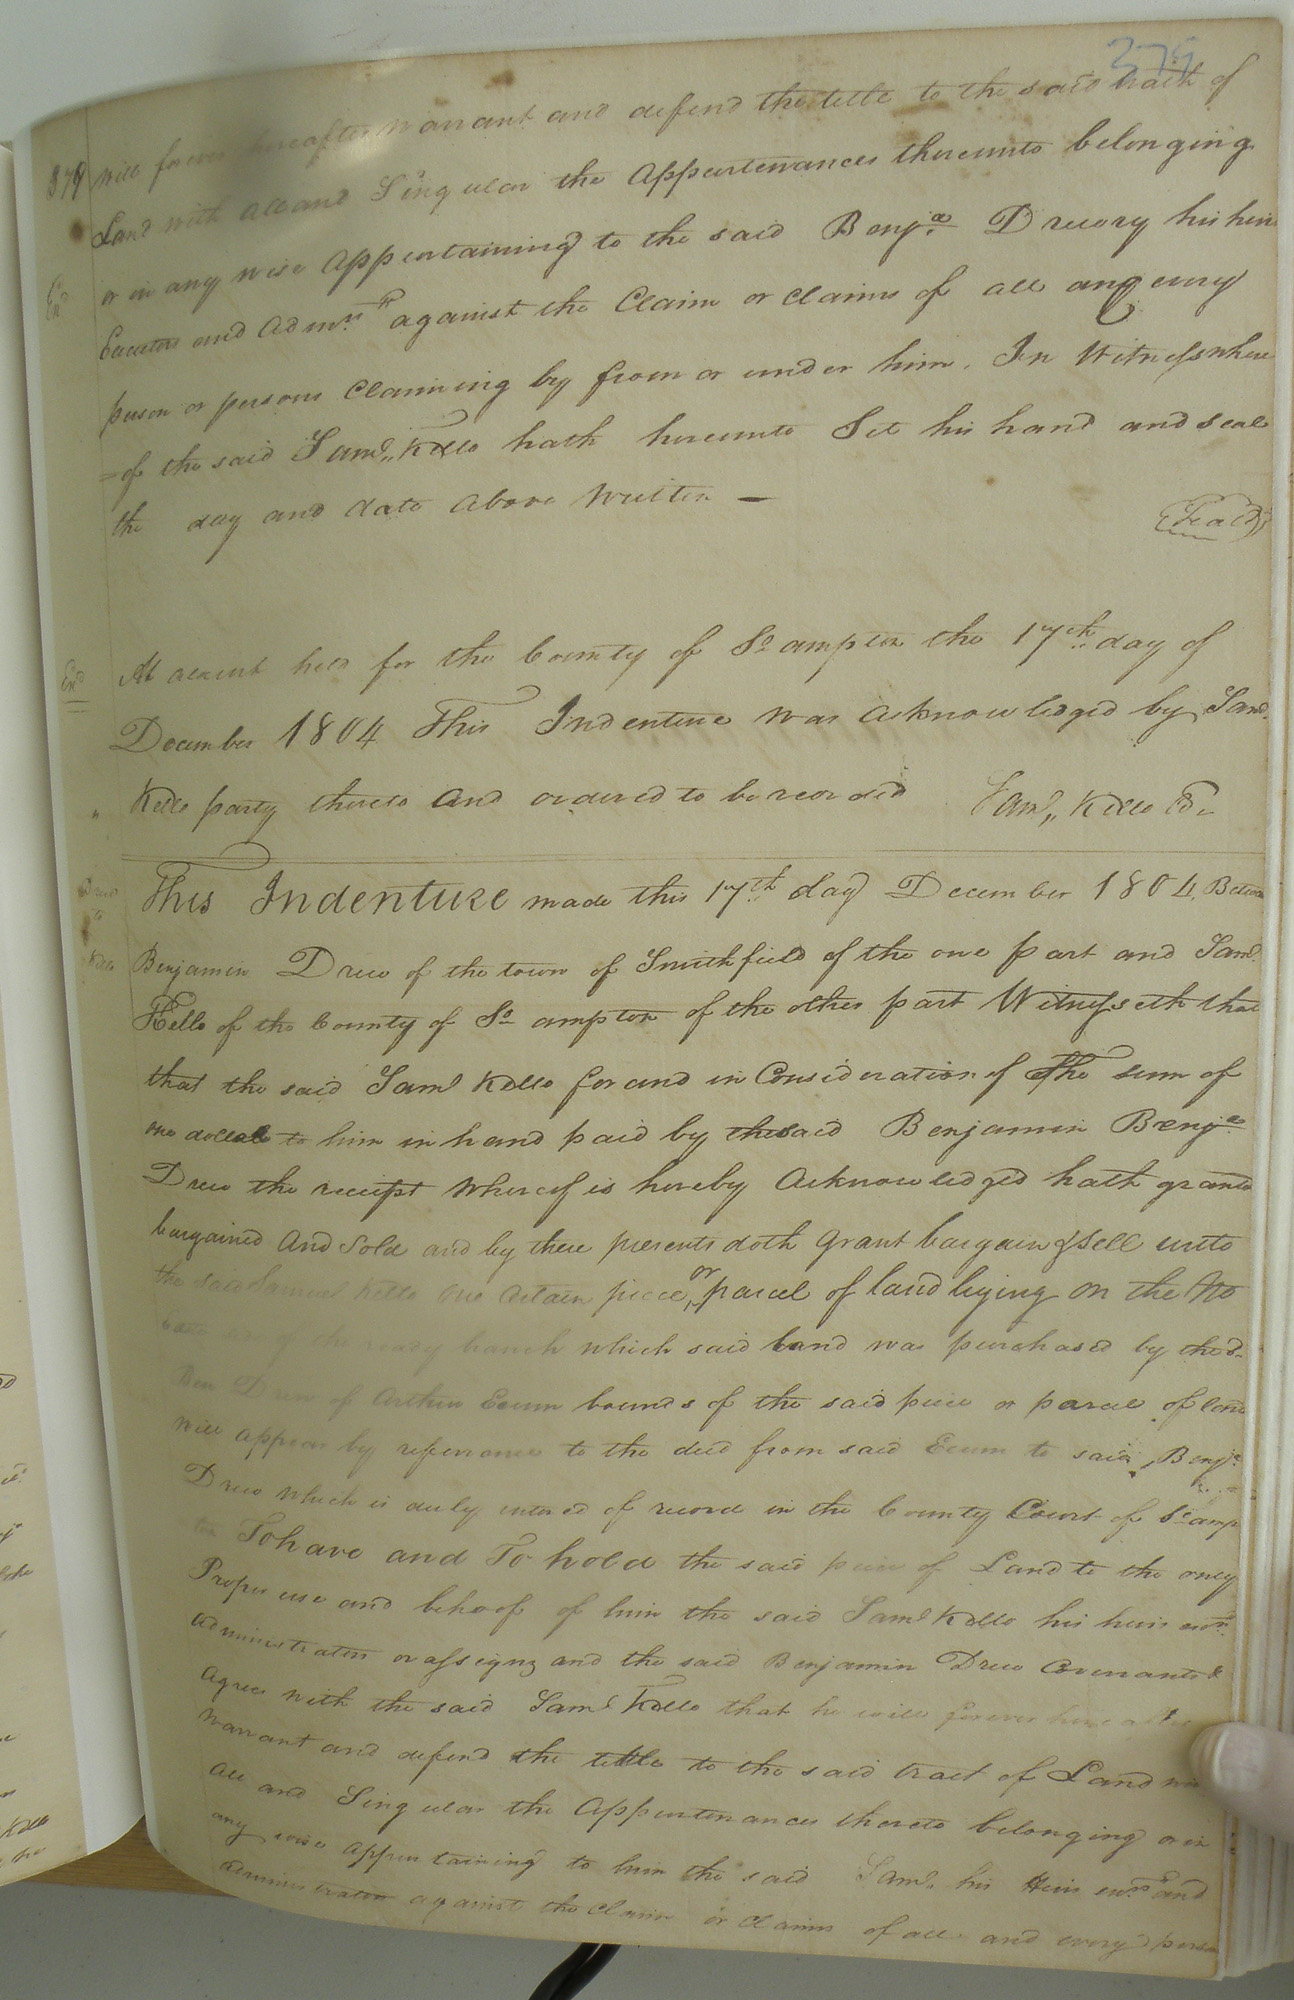 379
379 will forever hereafter warrant and defend the title to the said tract of
Land with all and Singular the Appurtenances thereunto belonging
or in any wise Appertaining to the said Benja. Drewry his heirs
Exd
Executors and Admrs against the Claim or claims of all and every
person or persons Claiming by from or under him. In Witness where
=of the said Saml,, Kello hath hereunto Set his hand and seal
the day and date above Written —
(Seal)
At acourt held for the County of So ampton the 17th day of
Exd
December 1804 This Indenture was acknowledged by Saml.
Kello party thereto and ordered to be recorded Saml,, Kello
This Indenture made this 17th day December 1804. Between
Drew
to
Kello
Benjamin Drew of the town of Smithfield of the one part and Saml.
Kello of the County of So ampton of the other part Witnesseth that
that the said Saml Kello for and in Consideration of The sum of
one dollar to him in hand paid by the said Benjamin Benja
Drew the receipt whereof is hereby Acknowledged hath granted
bargained And Sold and by these presents doth Grant bargain & Sell unto
the said Samuel Kello One Certain piece, or parcel of land lying on the No
side of the branch which said land was purchased by the sd.
Ben Drew of Arthur Exum bounds of the said piece or parcel of land
will appear by reference to the deed from said Exum to said, Benja.
Drew which is duly entered of record in the County Court of So amp
ton To have and To hold the said piece of Land to the only
Proper use and behoof of him the said Saml Kello his heirs exrs.
administrators or assigns and the said Benjamin Drew Covenants &
agrees with the said Saml Kello that he will forever hereafter
warrant and defend the title to the said tract of Land
all and Singular the Appurtenances thereto belonging or in
any wise appurtaining to him the said Saml. his Heirs exrs and
administrators against the claim or claims of all and every person